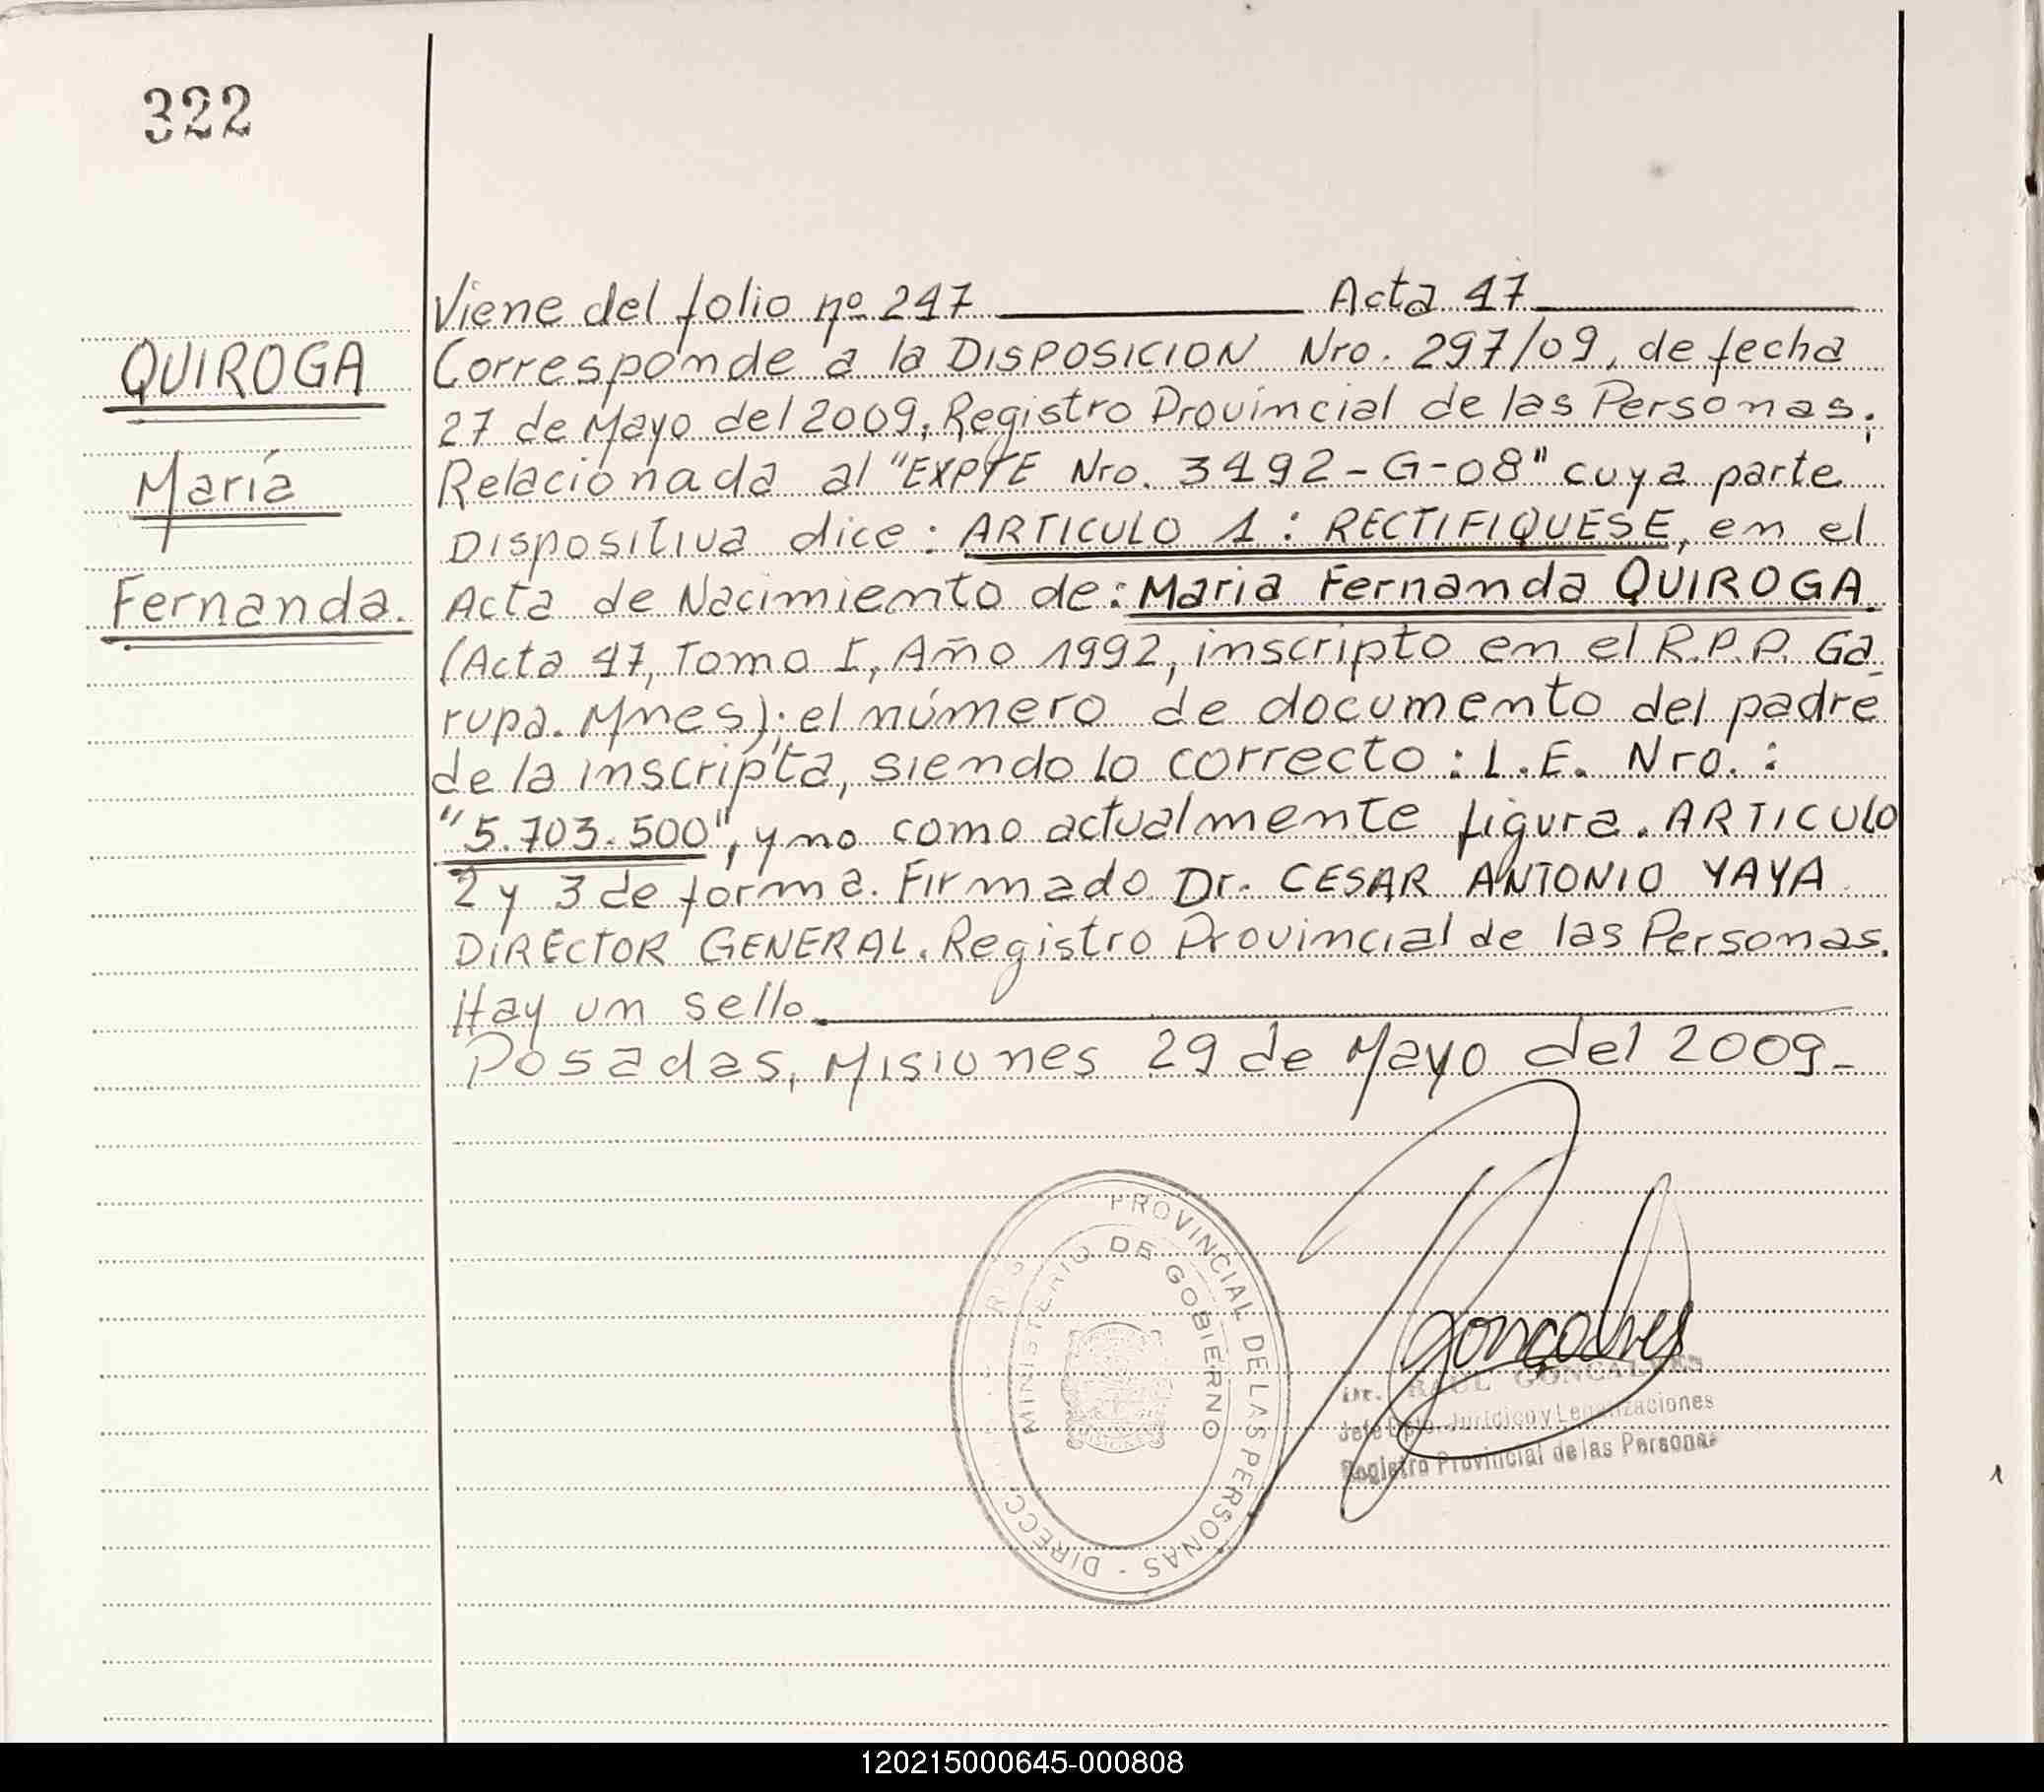 322
Viene del folio nº 247 Acta 47
QUIROGA
María
Fernanda.
Corresponde a la DISPOSICION Nro. 297/09, de fecha
27 de Mayo del 2009, Registro Provincial de las Personas;
Relacionada al "EXPTE Nro. 3492-G-08" cuya parte
Dispositiva dice: ARTICULO 1: RECTIFIQUESE, en el
Acta de Nacimiento de: Maria Fernanda QUIROGA.
(Acta 47, Tomo I, Año 1992, inscripto en el R.P.P. Ga-
rupa. Mnes); el número de documento del padre
de la inscripta, siendo lo correcto: L.E. Nro.:
"5.703.500", y no como actualmente figura. ARTICULO
2 y 3 de forma. Firmado Dr. CESAR ANTONIO YAYA
DIRECTOR GENERAL. Registro Provincial de las Personas.
Hay un sello.
Posadas, Misiones 29 de Mayo del 2009-
PROVINCIAL DE LAS PERSONAS - DIRECC
MINISTERIO DE GOBIERNO
Gonçalves
Dr. RAUL GONCALVES
Jefe Dpto. Jurídico y Legalizaciones
Registro Provincial de las Personas
120215000645-000808